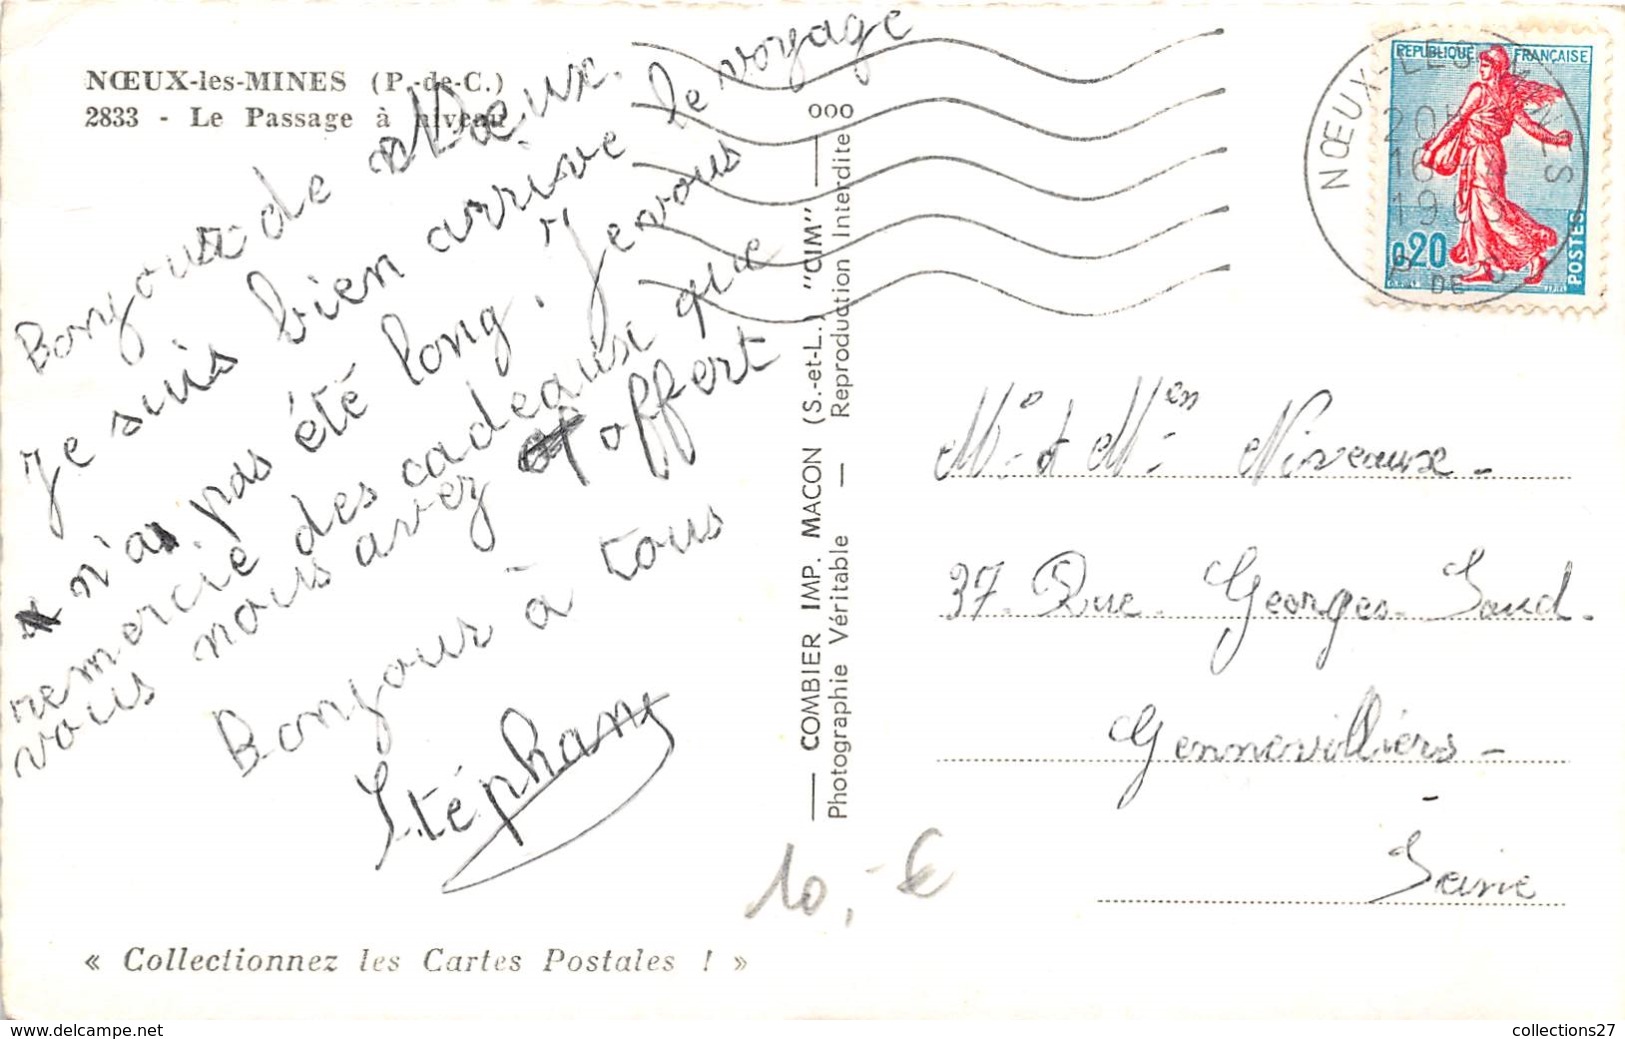 NŒUX-les-MINES (P.-de-C.)
2833 - Le Passage à niveau
Bonjour de Nœux.
Je suis bien arrive le voyage
n'a pas été long. Je vous
remercie des cadeaux que
vous nous avez offert
Bonjour à tous
Stéphany
« Collectionnez les Cartes Postales ! »
— COMBIER IMP. MACON (S.-et-L.) "CIM" —
Photographie Véritable — Reproduction Interdite
000
NŒUX-LES-MINES
20H
16 - 4
P. DE C.
REPUBLIQUE FRANÇAISE
0,20
POSTES
Mr et Mme Niveaux -
37 Rue Georges Sand.
Gennevilliers -
- Seine
10,-€
www.delcampe.net
collections27